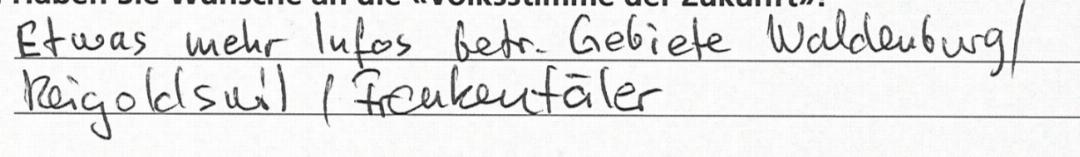 Haben Sie Wünsche an die «Volksstimme der Zukunft»?
Etwas mehr Infos betr. Gebiete Waldenburg/
Reigoldswil / Frenkentäler